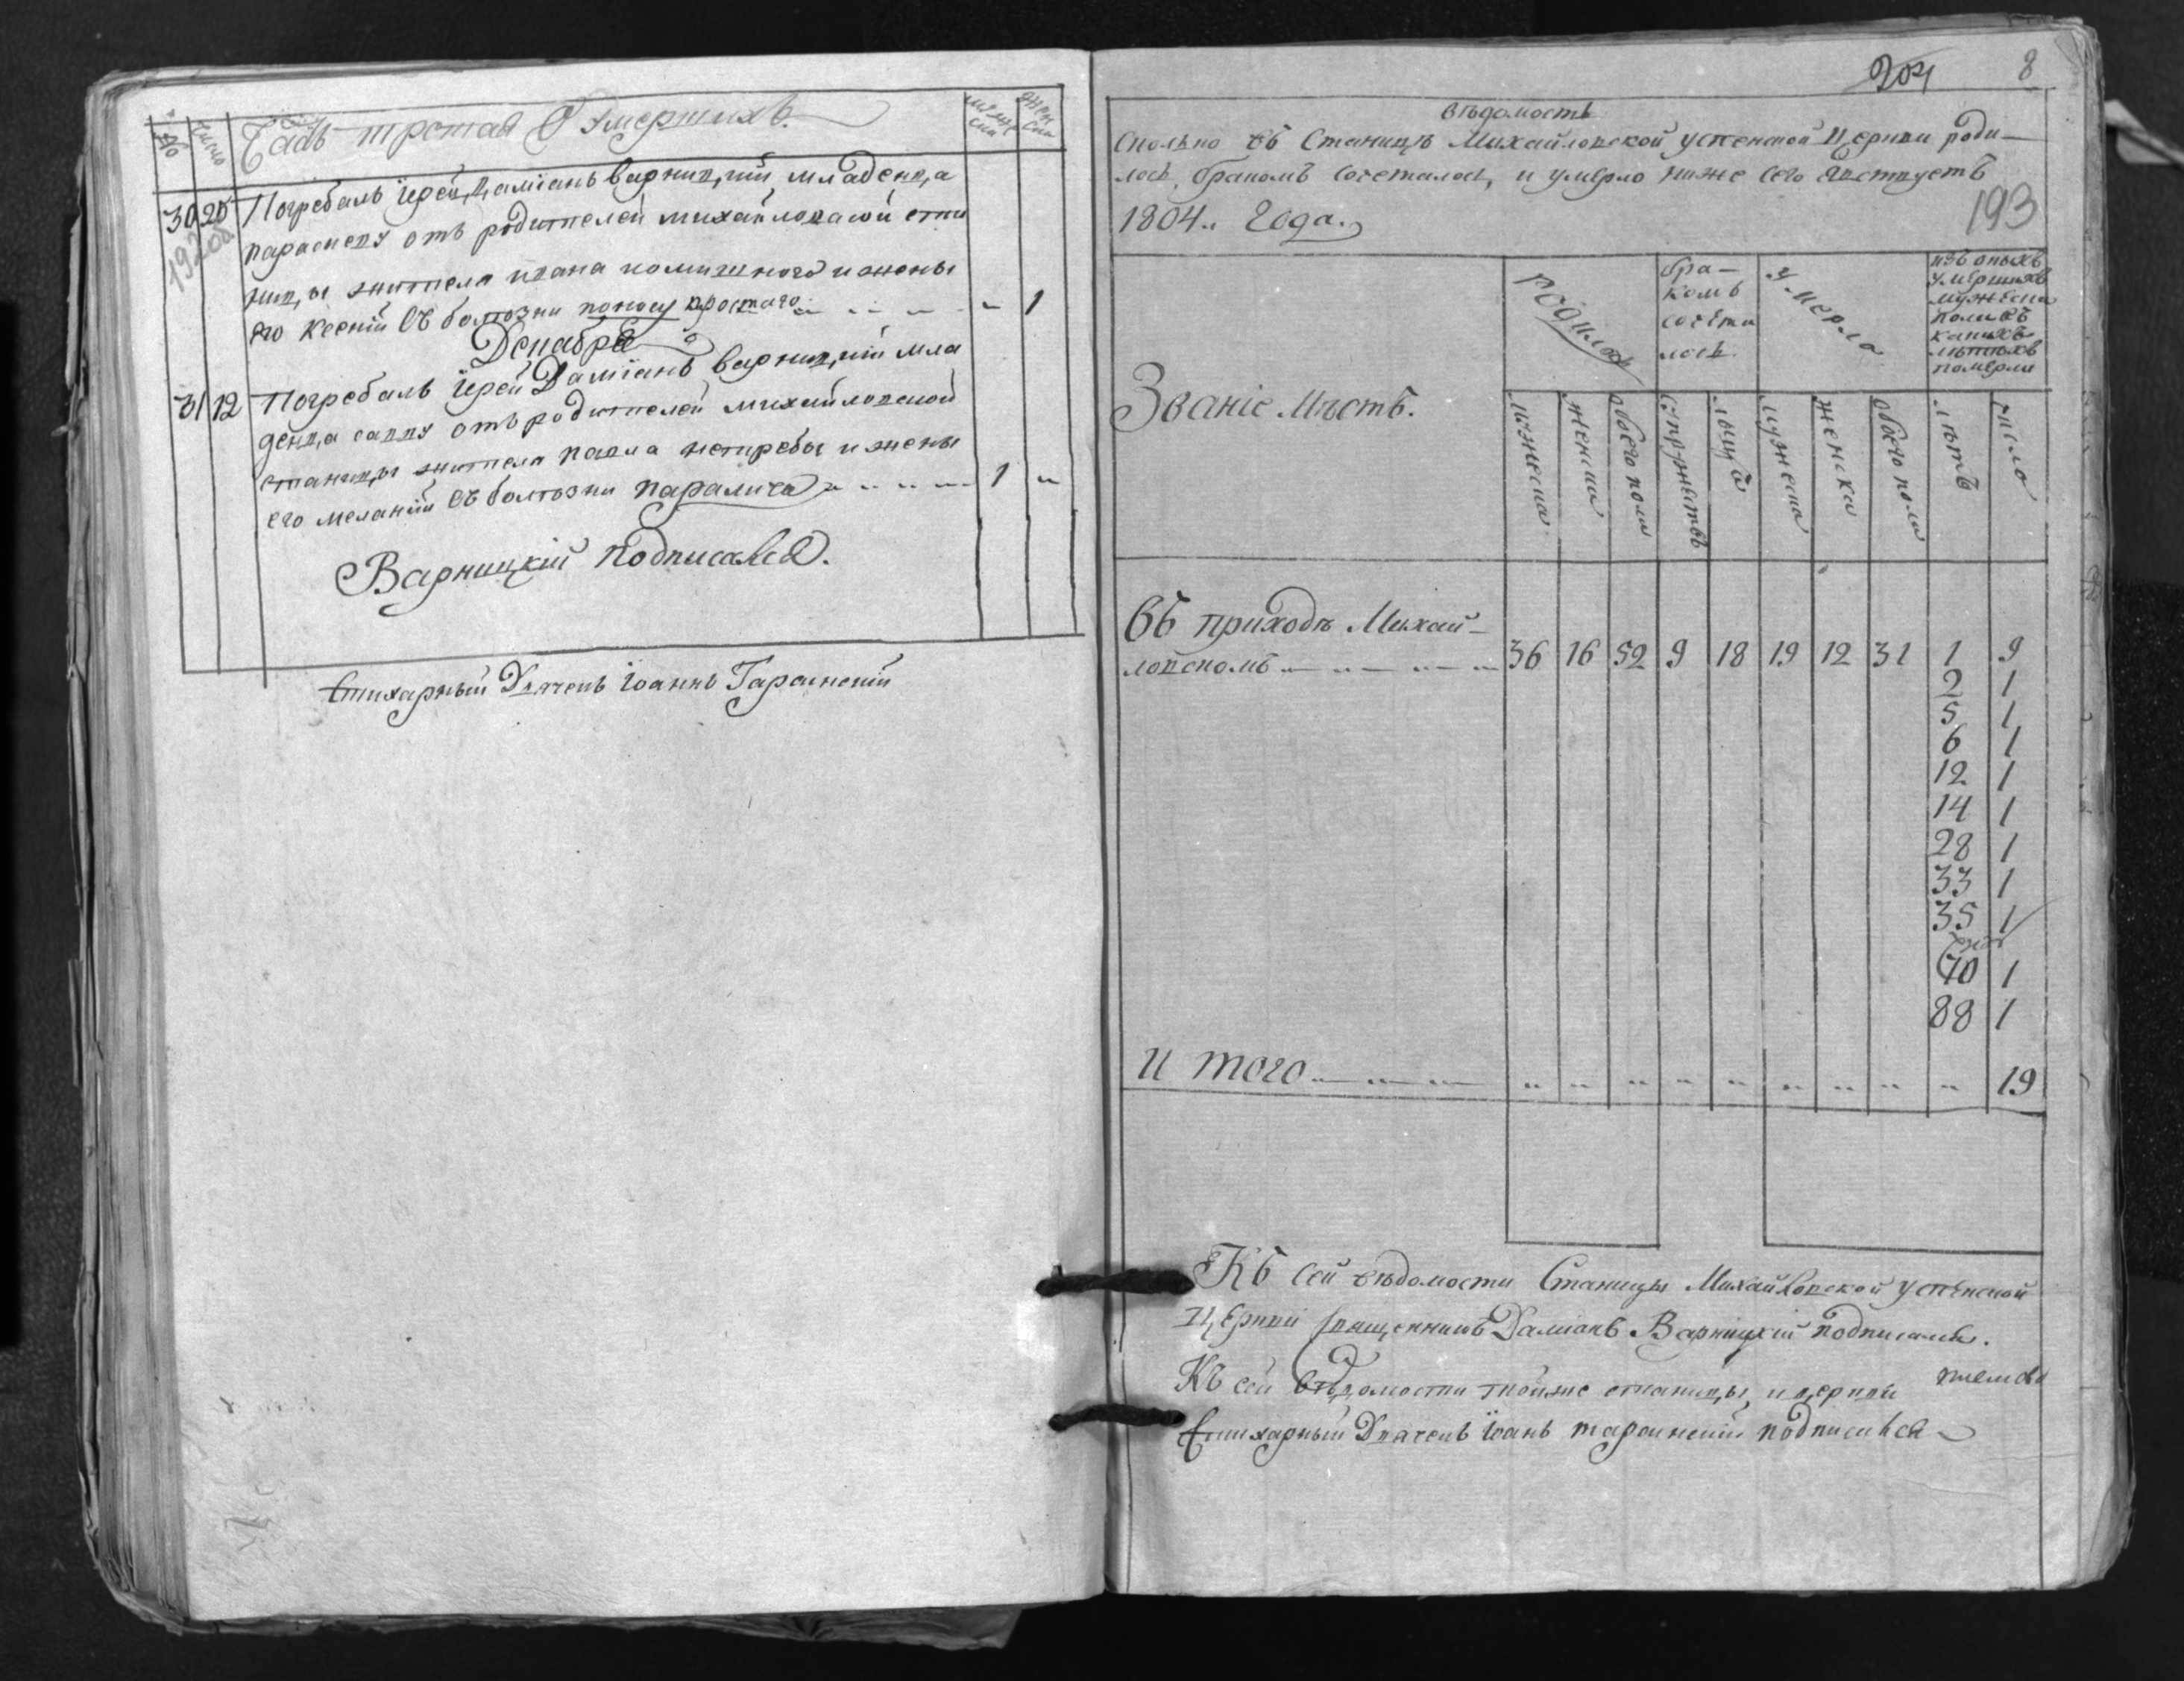 Часть третая О Умершихъ.
число
мужеска
женска
30 20 Погребалъ іерей Даміанъ Варницкій младенца
192об
параскеву отъ родителей михайловской стани
ницы жителя ивана и жены
его Ксеніи Съ болѣзни поносу простаго 1
Декабрь
31 12 Погребалъ іерей Даміанъ Варницкій мла
денца савву отъ родителей михайловской
станицы жителя павла нетребы и жены
его меланіи Съ болѣзни паралича 1
Варницкій подписался.
Стихарный Дьячекъ іоаннъ Тараинскій
204 8
вѣдомость
сколько въ Станицѣ Михайловской успенской Церкви роди-
лось, бракомъ сочеталось, и умерло ниже сего явствуетъ
1804. года.
193
Званіе Мѣстъ.
родилось
бра-
комъ
сочета
лось
умерло
изъ оныхъ
умершихъ
мужеска
пола въ
какихъ
лѣтѣхъ
померли
мужеска
женска
обоего пола
супружествъ
лицъ
мужеска
женска
обоего пола
лѣтъ
число
Въ приходѣ Михай-
ловскомъ 36 16 52 9 18 19 12 31 1 9
2 1
5 1
6 1
12 1
14 1
28 1
33 1
35 1
70 1
88 1
И того 19
Къ сей вѣдомости Станицы Михайловской успенской
Церкви священникъ Даміанъ Варницкій подписался.
Къ сей вѣдомости тойже станицы, и церкви
Стихарный Дьячекъ іоанъ тараинскій подписался